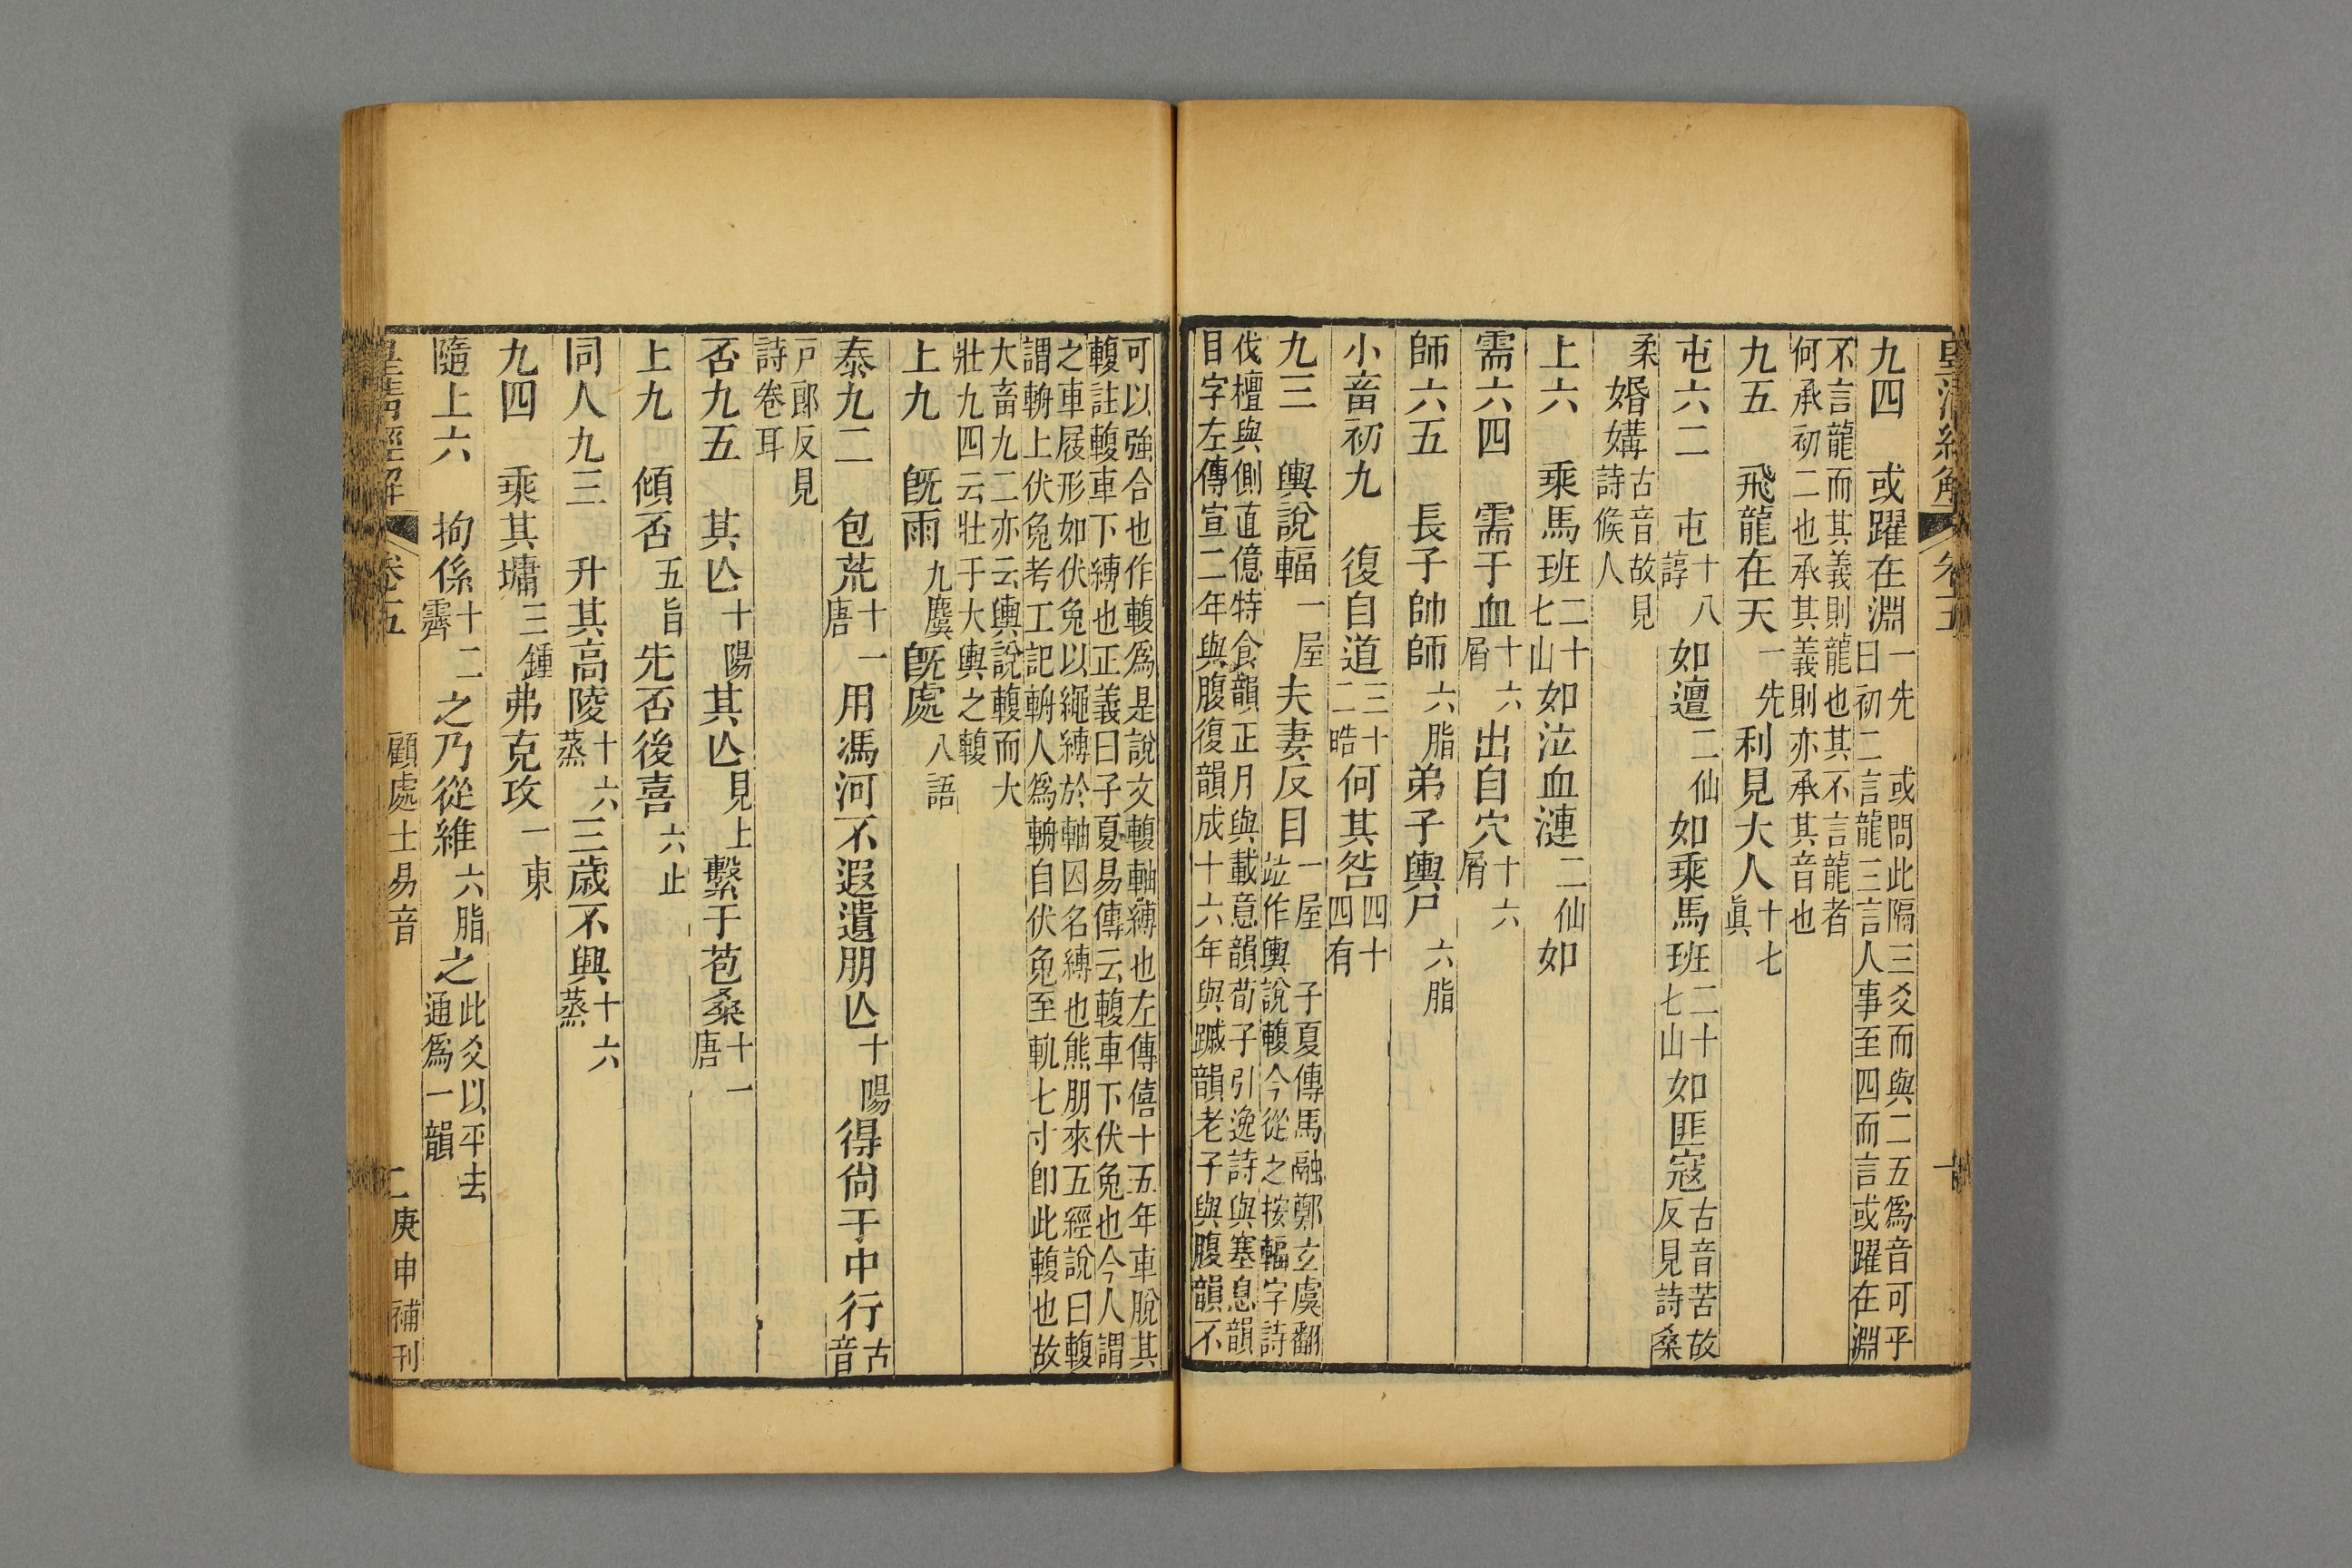 皇清經解 卷五 一
九四　或躍在淵一先 或問此隔三爻而與二五爲音可乎
曰初二言龍三言人事至四而言或躍在淵
不言龍而其義則龍也其不言龍者
何承初二也承其義則亦承其音也
九五　飛龍在天一先利見大人十七眞
屯六二　屯十八諄如邅二仙如乘馬班二十七山如匪寇古音苦故反見詩桑
柔婚媾古音故見詩候人
上六　乘馬班二十七山如泣血漣二仙如
需六四　需于血十六屑出自穴十六屑
師六五　長子帥師六脂弟子輿尸六脂
小畜初九　復自道三十二晧何其咎四十四有
九三　輿說輻一屋夫妻反目一屋 子夏傳馬融鄭玄虞翻
竝作輿說輹今從之按輻字詩
伐檀與側直億特食韻正月與載意韻荀子引逸詩與塞息韻
目字左傳宣二年與腹復韻成十六年與蹴韻老子與腹韻不
可以強合也作輹爲是說文輹軸縛也左傳僖十五年車脫其
輹註輹車下縛也正義曰子夏易傳云輹車下伏兔也今人謂
之車屐形如伏兔以繩縛於軸因名縛也熊朋來五經說曰輹
謂輈上伏兔考工記輈人爲輈自伏兔至軌七寸卽此輹也故
大畜九二亦云輿說輹而大
壯九四云壯于大輿之輹
上九　旣雨九麌旣處八語
泰九二　包荒十一唐用馮河不遐遺朋亾十陽得尙于中行古音
戸郎反見詩卷耳
否九五　其亾十陽其亾見上繫于苞桑十一唐
上九　傾否五旨先否後喜六止
同人九三　升其高陵十六蒸三歲不興十六蒸
九四　乘其墉三鍾弗克攻一東
隨上六　拘係十二霽之乃從維六脂之此爻以平去通爲一韻
皇淸經解 卷五 顧處士易音 二 庚申補刊